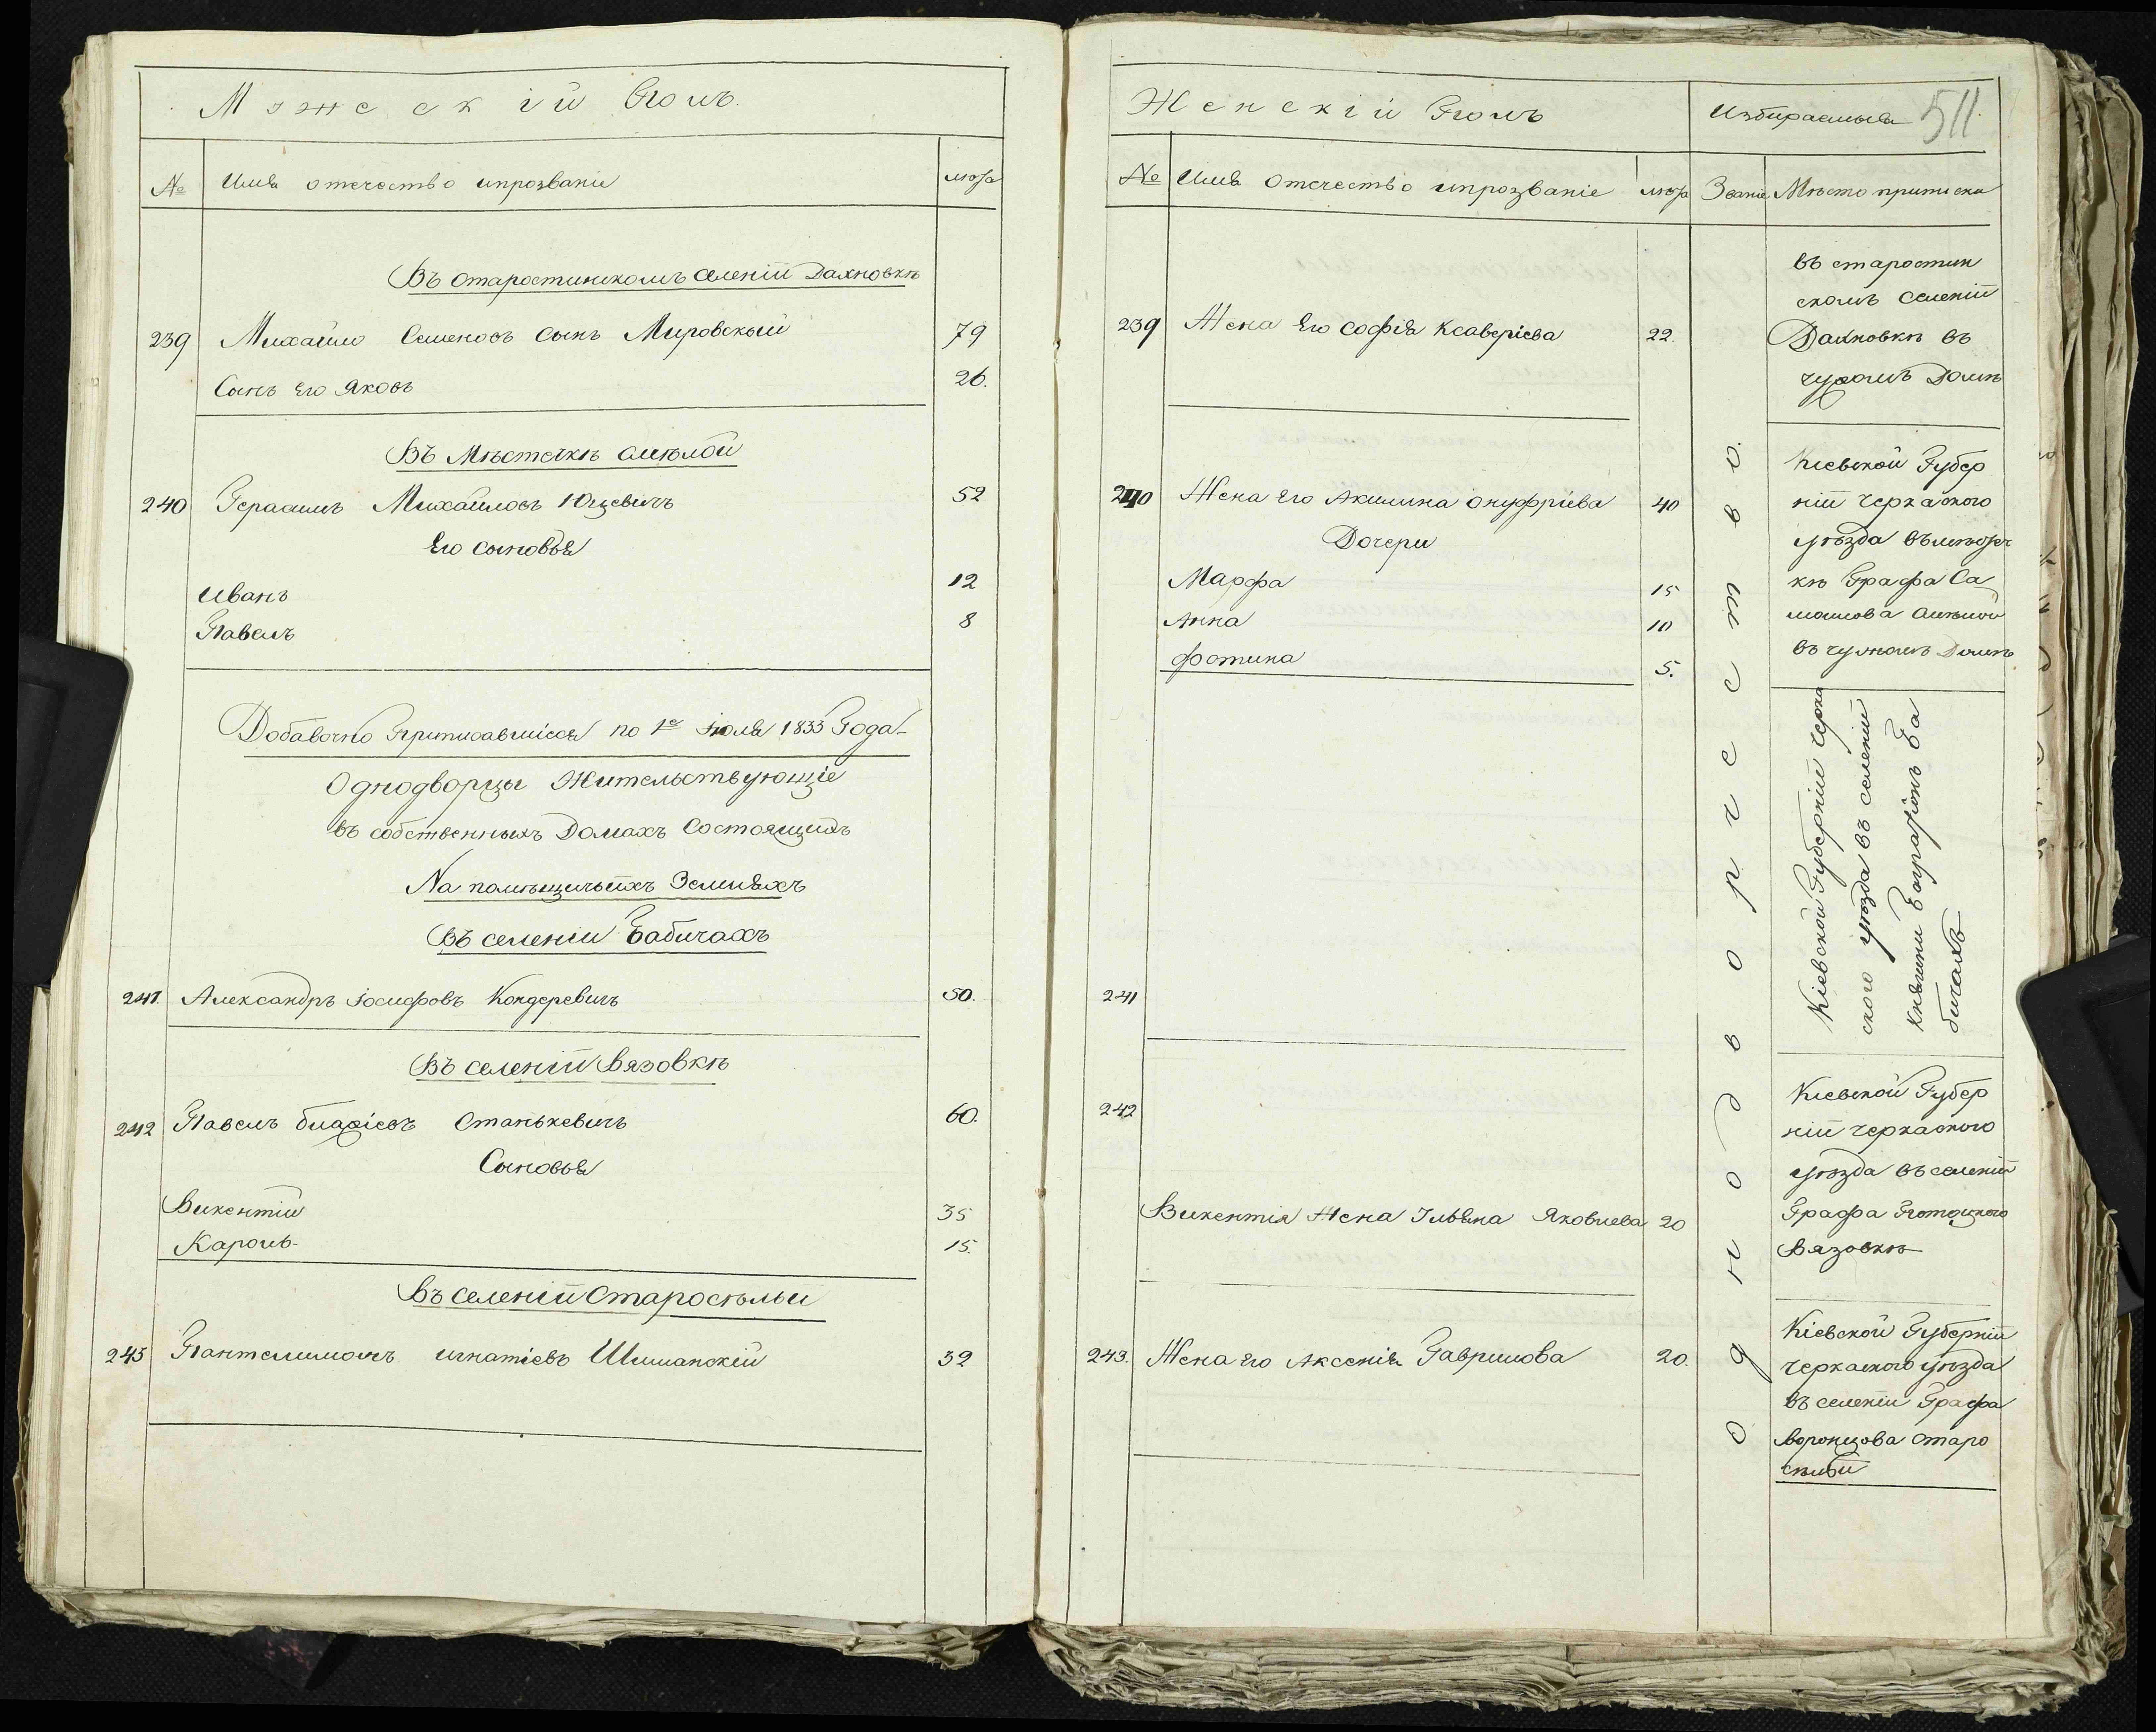 Мужескій Полъ
№ Имя отечество ипрозваніе лѣта
Въ старостинскомъ селеніи Дахновкѣ
239 Михаило Семеновъ сынъ Мировскый 79
Сынъ Его Яковъ 26.
Въ Мѣстечкѣ смѣлой
240 Герасимъ Михайловъ Юцевичъ 52
Его сыновья
Иванъ 12
Павелъ 8
Добавочно Приписавшіеся по 1е июля 1833 Года
Однодворцы Жительствующіе
въ собственныхъ Домахъ Состоящихъ
На помѣщичьихъ Земляхъ
Въ селеніи Бабичахъ
241. Александръ Іосифовъ Кондеревичъ 50.
Въ селеніи Вязовкѣ
242 Павелъ Станькевичъ 60.
Сыновья
Викентій 35
Кароль 15.
Въ селеніи Старосѣльи
243 Пантелимонъ игнатіевъ Шиманскій 32
Женскій Полъ Избираемыя 511
№ Имя Отечество ипрозваніе лѣта Званіе Мѣсто приписки
239 Жена Его софія Ксаверіева 22.
240 Жена Его Акилина Онуфріева 40
Дочери
Марфа 15
Анна 10
Фотина 5.
241
242
Викентія Жена Ульяна Яковлева 20
243. Жена Его Аксенія Гаврилова 20.
однодворчество.
въ старостин
скомъ селеніи
Дахновкѣ въ
чужомъ Домѣ
Кіевской Губер
ніи черкаского
уѣзда въ мѣстеч
кѣ Графа Са
моилова смѣлой
въ чужомъ Домѣ
Кіевской Губерніи черка
ского уѣзда въ селеніи
Княгини Багратіонъ Ба
бичахъ
Кіевской Губер
ніи черкаского
уѣзда въ селеніи
Графа Потоцкого
Вязовкѣ
Кіевской Губерніи
черкаского уѣзда
въ селеніи Графа
Воронцова старо
сѣльи